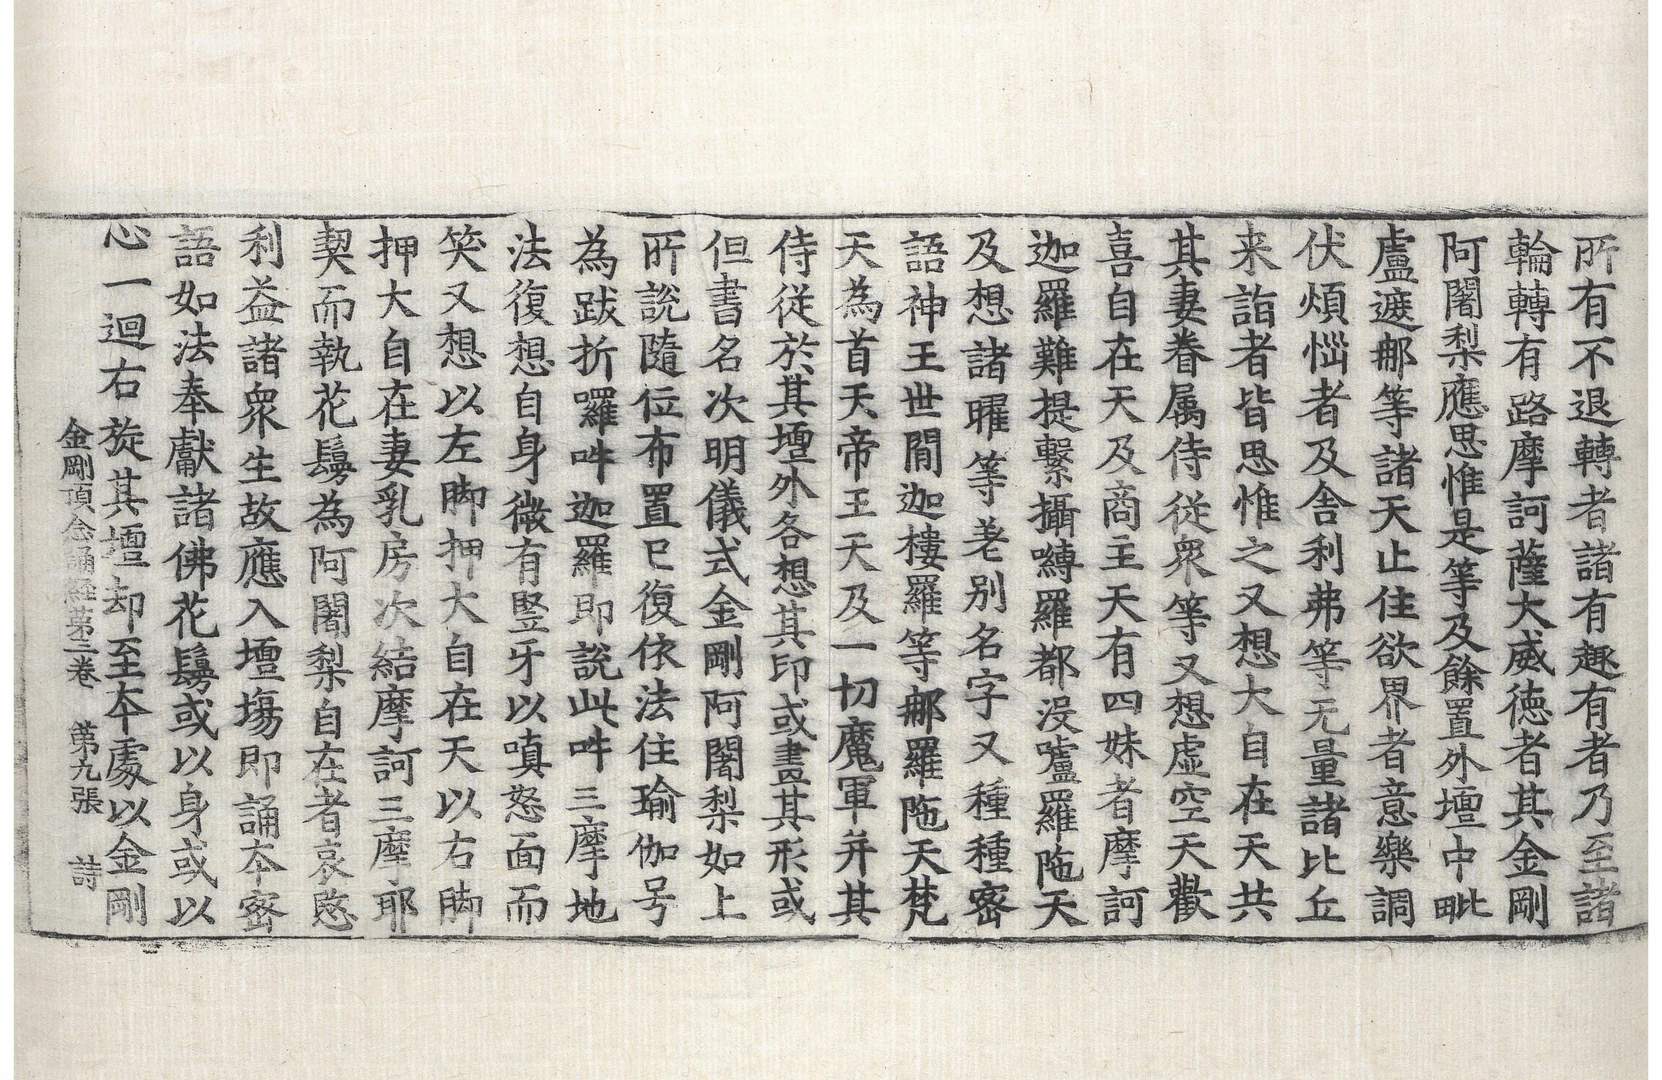 所有不退轉者諸有趣有者乃至諸
輪轉有路摩訶薩大威徳者其金剛
阿闍梨應思惟是等及餘置外壇中毗
盧遮那等諸天止住欲界者意樂調
伏煩惱者及舍利弗等无量諸比丘
来詣者皆思惟之又想大自在天共
其妻眷属侍從衆等又想虚空天歡
喜自在天及商主天有四妹者摩訶
迦羅難提繫攝嚩羅都沒嚧羅陁天
及想諸曜等差別名字又種種密
語神王世間迦樓羅等那羅陁天梵
天為首天帝王天及一切魔軍并其
侍從於其壇外各想其印或畫其形或
但書名次明儀式金剛阿闍梨如上
所說隨位布置已復依法住瑜伽号
為跋折囉吽迦羅即説此吽三摩地
法復想自身微有竪牙以嗔怒面而
笑又想以左脚押大自在天以右脚
押大自在妻乳房次結摩訶三摩耶
契而執花鬘為阿闍梨自在者哀愍
利益諸衆生故應入壇場即誦本密
語如法奉獻諸佛花鬘或以身或以
心一迴右旋其壇却至本處以金剛
金剛頂念誦経苐二卷 第九張 詩